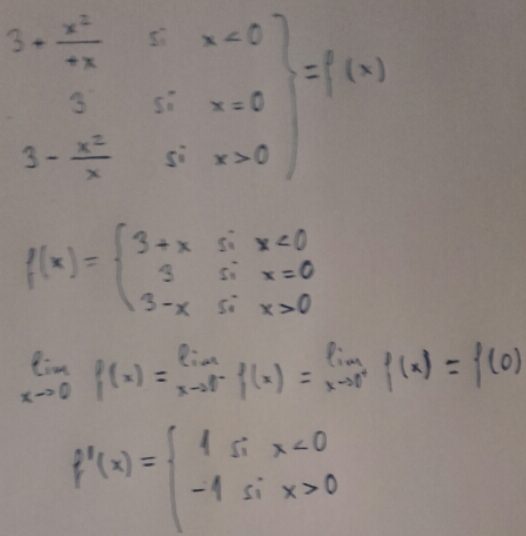 3 + x²/+x si x < 0
3 si x = 0 } = f(x)
3 - x²/x si x > 0
f(x) = { 3 + x si x < 0
3 si x = 0
3 - x si x > 0
lim x→0 f(x) = lim x→0⁻ f(x) = lim x→0⁺ f(x) = f(0)
f'(x) = { 1 si x < 0
-1 si x > 0